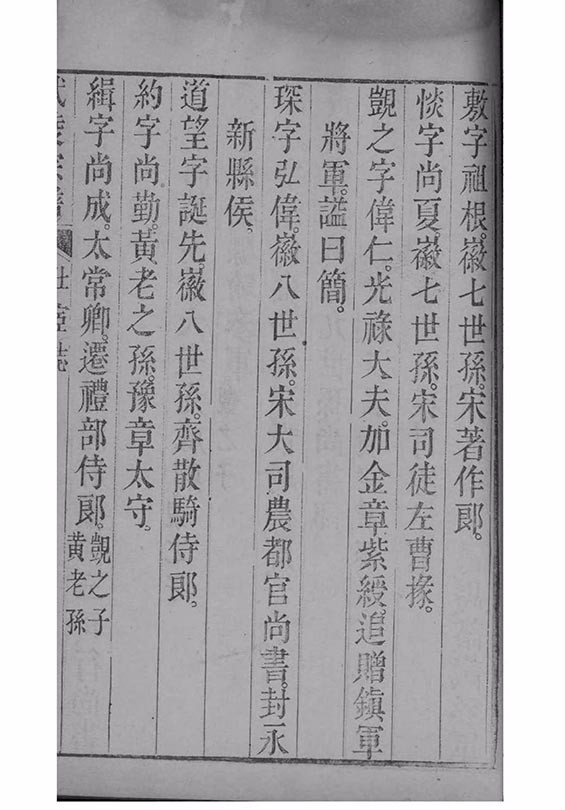 敷字祖根。徽七世孫。宋著作郎。
惔字尚夏。徽七世孫。宋司徒左曹掾。
覬之字偉仁。光祿大夫。加金章紫綬。追贈鎮軍
將軍。謚曰簡。
琛字弘偉。徽八世孫。宋大司農都官尚書。封永
新縣侯。
道望字誕先。徽八世孫。齊散騎侍郎。
約字尚勤。黃老之孫。豫章太守。
緝字尚成。太常卿。遷禮部侍郎。覬之子
黃老孫